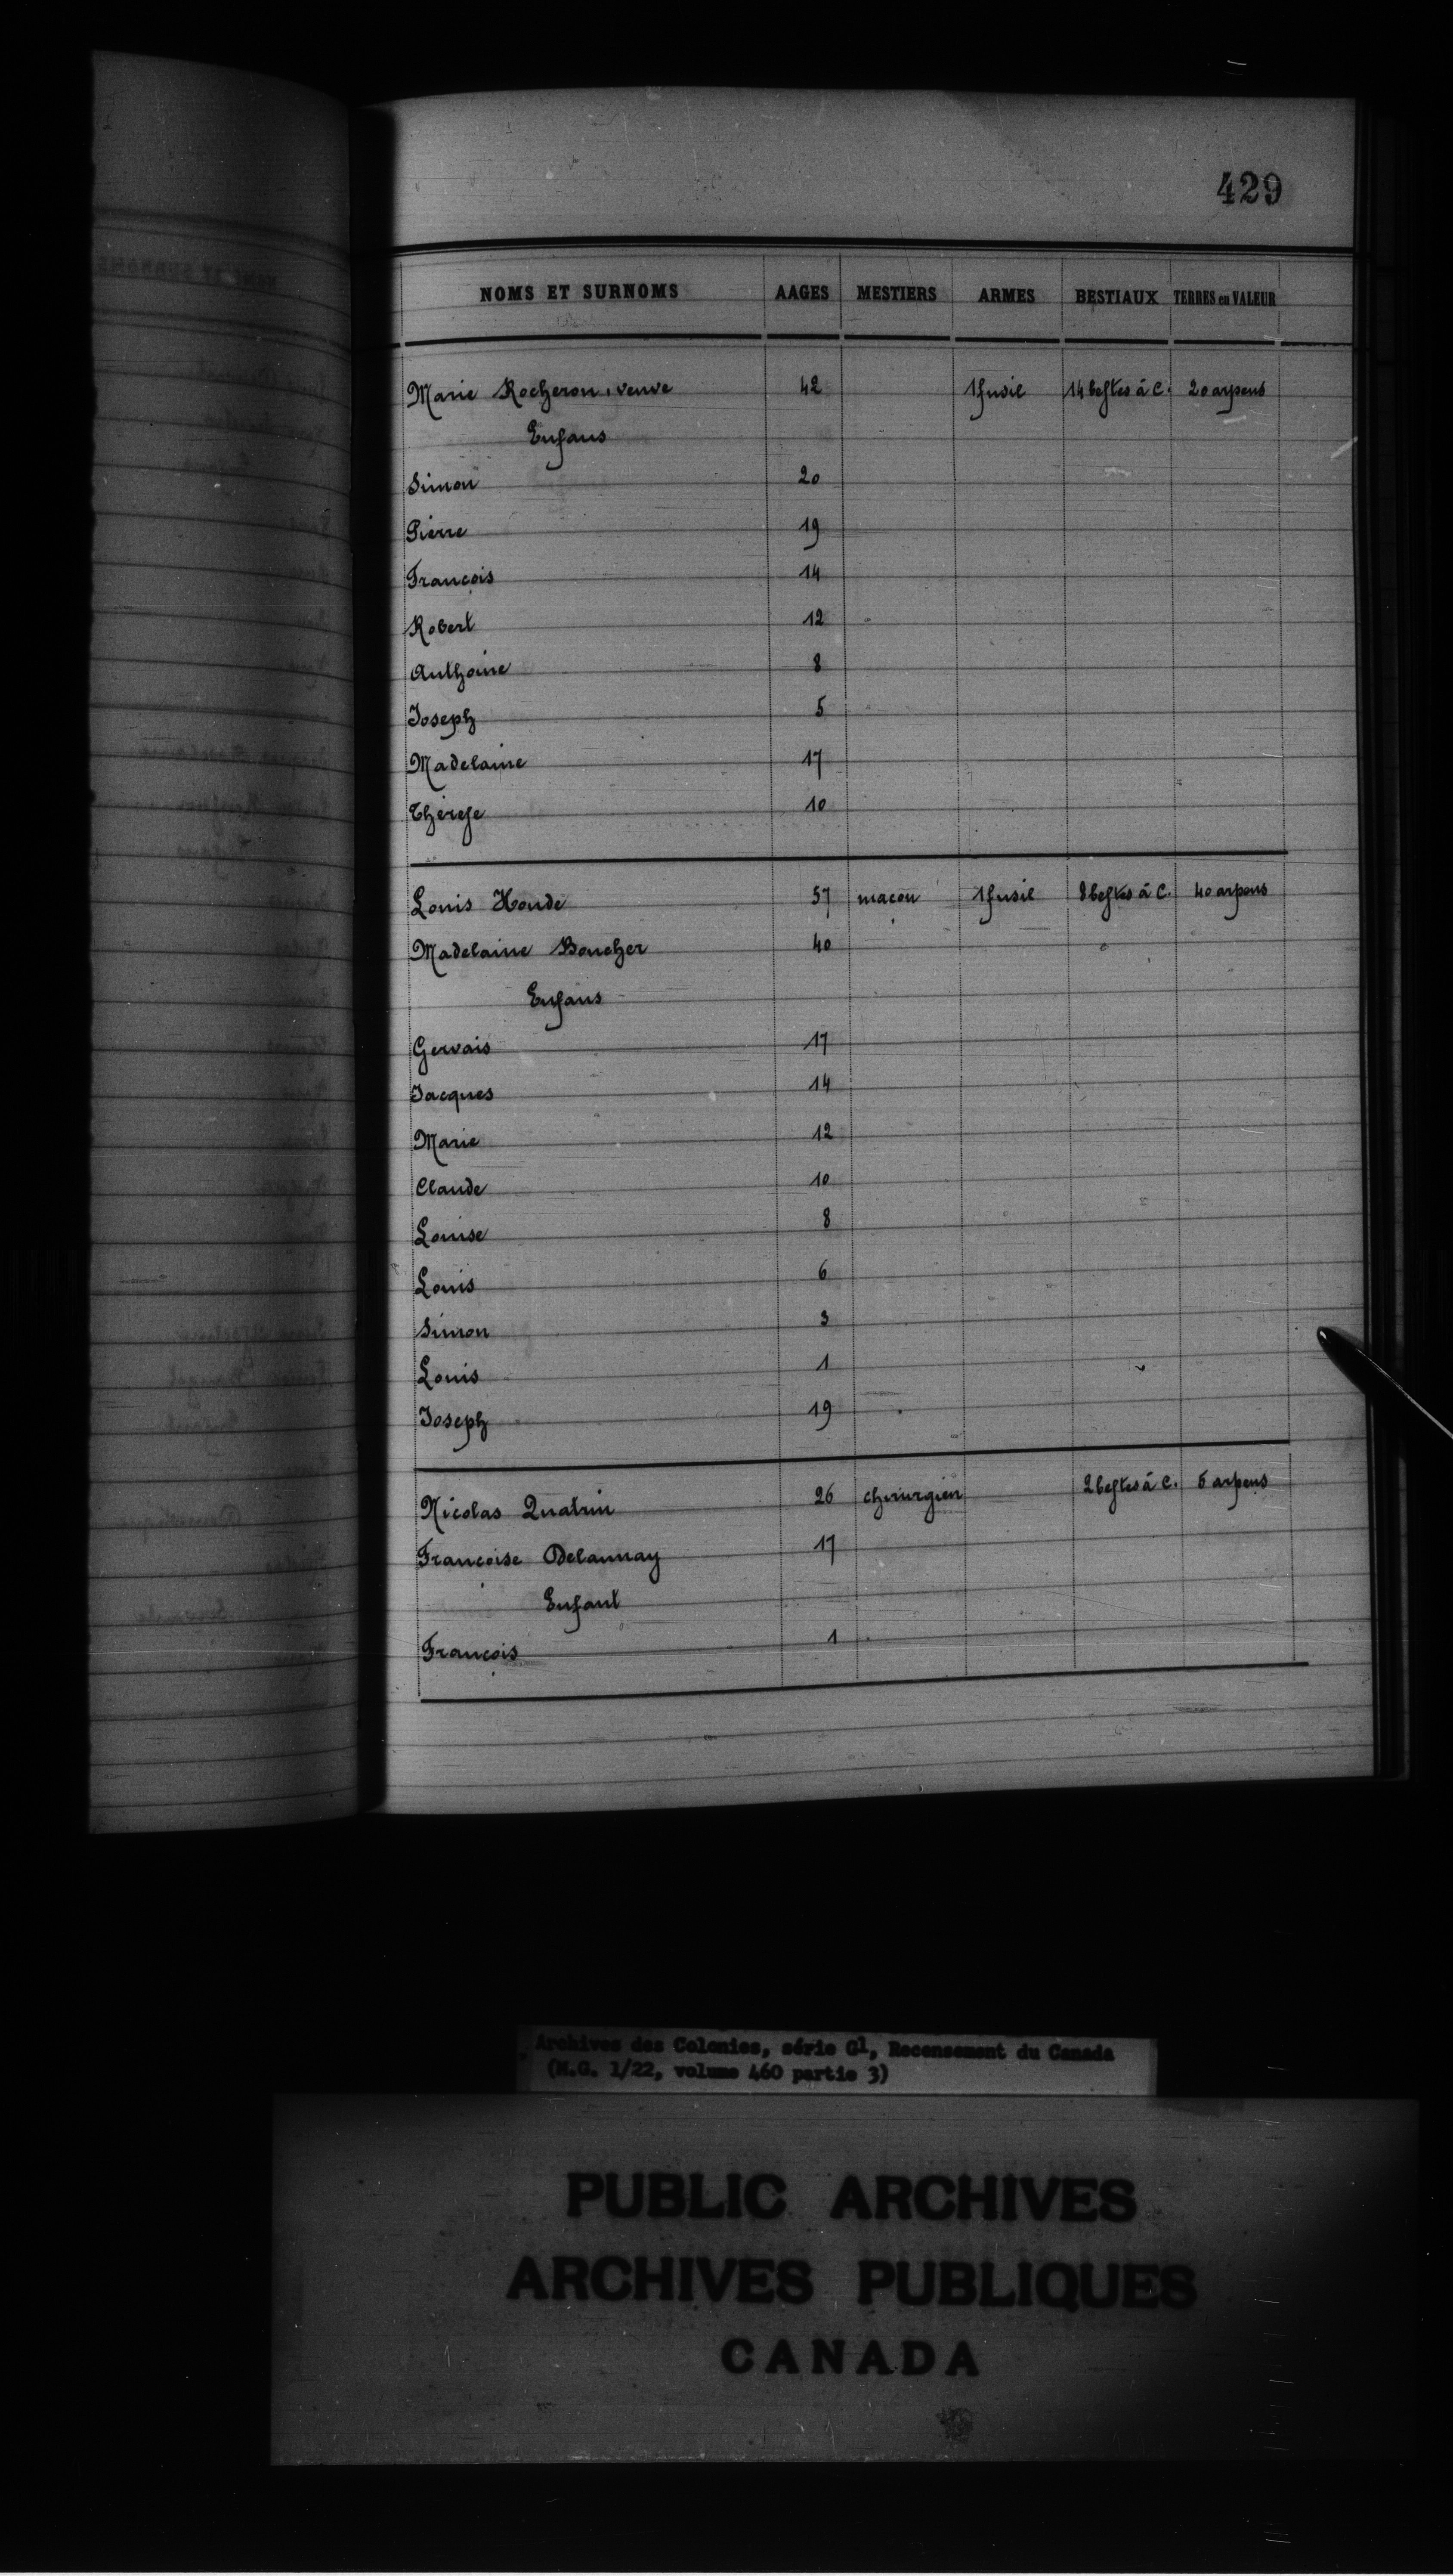 429
NOMS ET SURNOMS AAGES MESTIERS ARMES BESTIAUX TERRES en VALEUR
Marie Rocheron, veuve 42 1 fusil 14 bestes à c. 20 arpens
Enfans
Simon 20
Pierre 19
François 14
Robert 12
Anthoine 8
Joseph 5
Madelaine 17
Thérese 10
Louis Houde 57 maçon 1 fusil 8 bestes à c. 40 arpens
Madelaine Boucher 40
Enfans
Gervais 17
Jacques 14
Marie 12
Claude 10
Louise 8
Louis 6
Simon 3
Louis 1
Joseph 19
Nicolas Quatrin 26 chirurgien 2 bestes à c. 6 arpens
Françoise Delaunay 17
Enfant
François 1
Archives des Colonies, série G1, Recensement du Canada
(M.G. 1/22, volume 460 partie 3)
PUBLIC ARCHIVES
ARCHIVES PUBLIQUES
CANADA